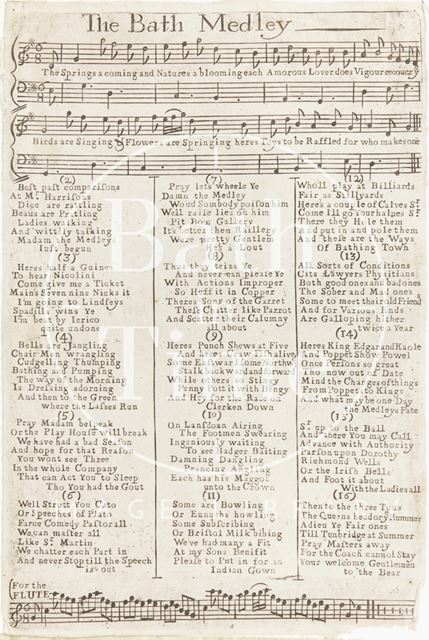 The Bath Medley
The Springs a coming and Natures a blooming each Amorous Lover does Vigour recovery
Birds are Singing & Flowers are Springing heres Toys to be Raffled for who makes one
(2)
Best past comparisons
At Mr. Harrisons
Dice are ratling
Beaus are Pratling
Ladies walking
And wittily talking
Madam the Medleys
Just begun
(3)
Heres half a Guinea
To hear Nicolini
Come give me a Ticket
Mains Seven nine Nicks it
I'm going to Lindseys
Spadill wins Ye
I'm beat by Ierico
quite undone
(4)
Bells are Jangling
Chair Men wrangling
Cudgelling Thumping
Bathing and Pumping
The way of the Morning
Is Drinking adorning
And then to the Green
where the Lasses Run
(5)
Pray Madam bespeak
Or the Play House will break
We have had a bad Season
And hope for that Reason
You wont See Three
In the whole Company
That can Act You to Sleep
Tho You had the Gout
(6)
Well Strutt You Cato
Or Speeches of Plato
Farce Comedy Pastorall
We can master all
Like Sr. Martin
We chatter each Part in
And never Stop till the Speech
is out
(7)
Pray lets wheele Ye
Damn the Medley
Woud Sombody poison him
Well raise lies on him
Pit Box Gallery
It's better then Mallery
Were pretty Gentlem
Hes Lout
(8)
Thus they teize Ye
And never can please Ye
With Actions Improper
So Hess it in Copper
Theres Sons of the Garret
That Chatter like Parrot
And Scatter their Calumny
all about
(9)
Heres Punch Shews at Five
And heres Craw
Some Eastward Some Northw
Stalk backward and forward
While others so Stingy
Penny Pot it with Bengy
And Hey for the Race on
Clerken Down
(10)
On Lansdoan Airing
The Footmen Swearing
Ingeniously waiting
To see Badger Baiting
Damning Dangling
Prancing Angling
Each has his Maggot
unto the Crown
(11)
Some are Bowling
Or Eunuchs howling
Some Subscribing
Or Bristol Milk bibing
We've had many a Fit
At my Sons Benifit
Please to Put in for an
Indian Gown
(12)
Wholl play at Billiards
Fair as Stillyards
Heres a couple of Calves Sr.
Come Ill go Your halves Sr.
There they Hole them
And put in and pole them
And these are the Ways
Of Bathing Town
(13)
All Sorts of Conditions
Cits Lawyers Phisitians
Both good ones and bad ones
The Sober and Mad ones
Some to meet their old Friend
And for Various Ends
Are Galloping hither
twice a Year
(14)
Heres King Edgar and Kaole
And Poppet Show Powel
Once Persons so great
Tho now out of Date
Mind the Changes of things
From Poppet to Kings
And what may be one Day
the Medleys Fate
(15)
Sr. up to the Ball
And there You may Call
Advance with Authority
Farson upon Dorothy
Richmond Wells
Or the Irish Bells
And Foot it about
With the Ladies all
(16)
Then to the three Tuns
The Queens head or ummer
Adieu Ye Fair ones
Till Tunbridge at Summer
Pray Masters away
For the Coach cannot Stay
Your welcome Gentlemen
to the Bear
For the
FLUTE
© Bath in Time